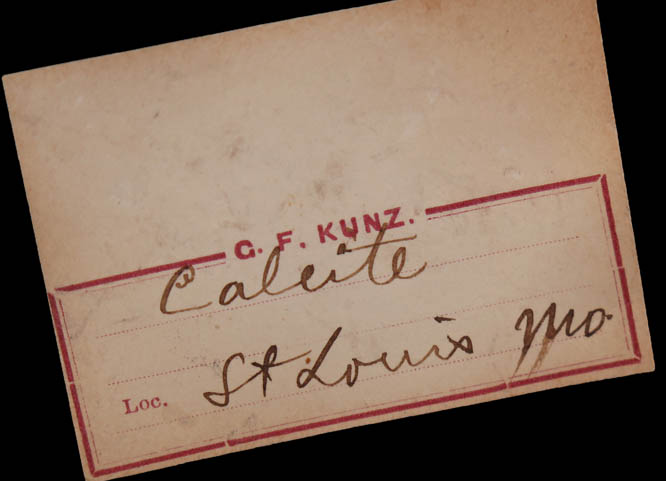 G. F. KUNZ.
Calcite
Loc. St Louis Mo.